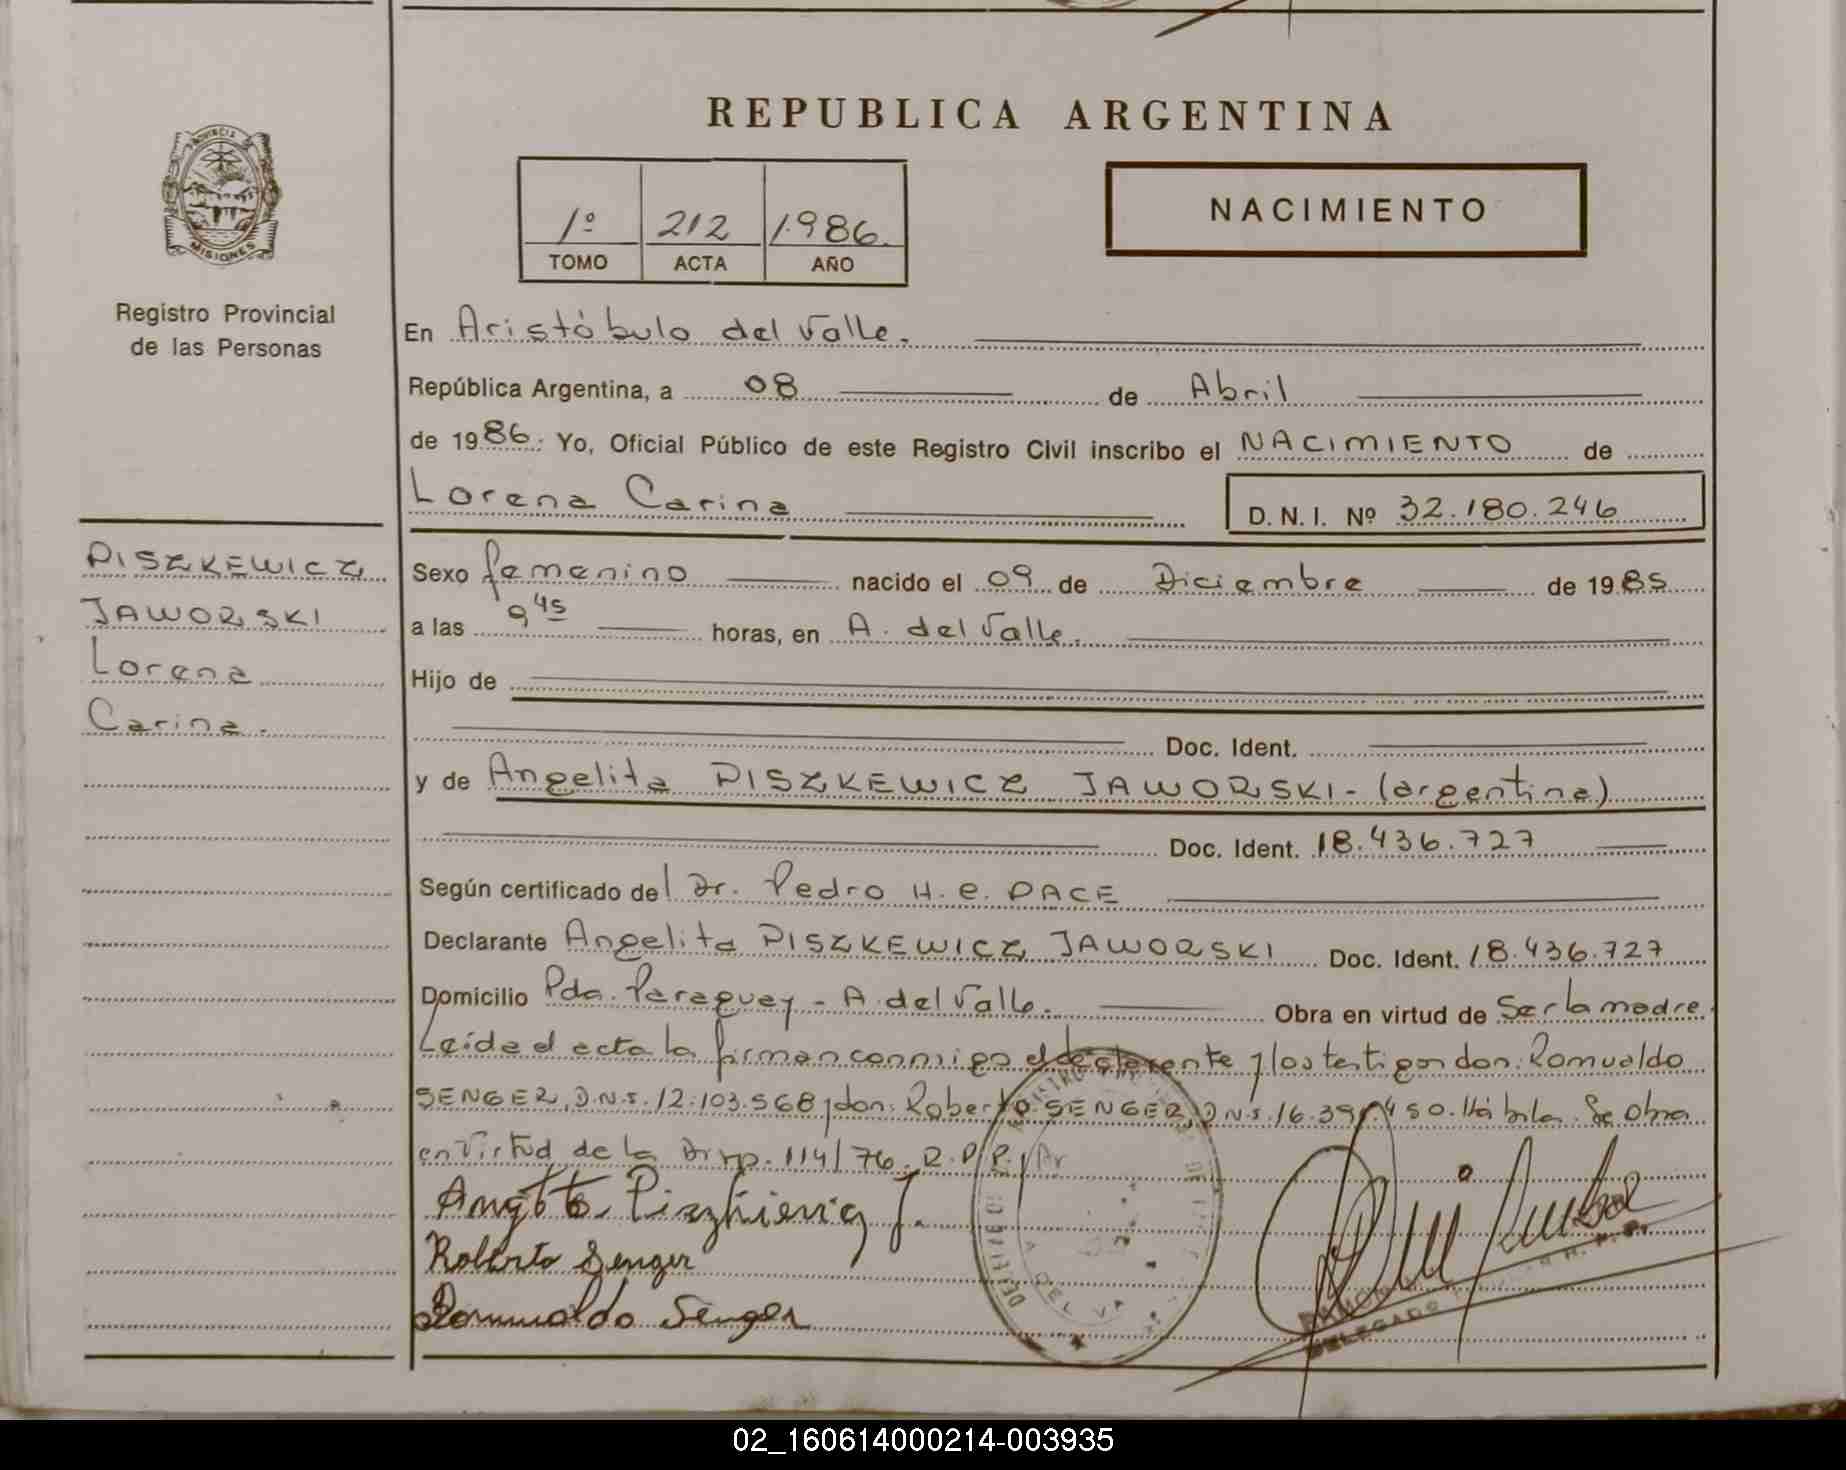 REPUBLICA ARGENTINA
PROVINCIA
MISIONES
1º 212 1.986.
TOMO ACTA AÑO
NACIMIENTO
Registro Provincial
de las Personas
En Aristóbulo del Valle.
República Argentina, a 08 de Abril
de 1986. Yo, Oficial Público de este Registro Civil inscribo el NACIMIENTO de
Lorena Carina D. N. I. Nº 32.180.246
PISZKEWICZ
JAWORSKI
Lorena
Carina.
Sexo femenino nacido el 09 de Diciembre de 1985
a las 9 45 horas, en A. del Valle.
Hijo de
Doc. Ident.
y de Angelita PISZKEWICZ JAWORSKI - (argentina)
Doc. Ident. 18.436.727
Según certificado del Dr. Pedro H. e. PACE
Declarante Angelita PISZKEWICZ JAWORSKI Doc. Ident. 18.436.727
Domicilio Pda. Paraguay - A. del Valle. Obra en virtud de Ser la madre.
Leída el acta la firman conmigo el declarante y los testigos don: Romualdo
SENGER, D.N.I. 12.103.568 y don: Roberto SENGER, D.N.I. 16.39 .450. Hábiles. Se obra
en Virtud de la Disp. 114/76. R.P.P.
Roberto Senger
Romualdo Senger
DEL VA
RAMON
DELEGADO
02_160614000214-003935